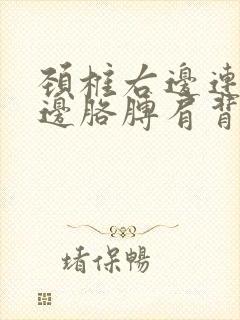 頸椎右邊連
邊胳膊肩背
堵保暢